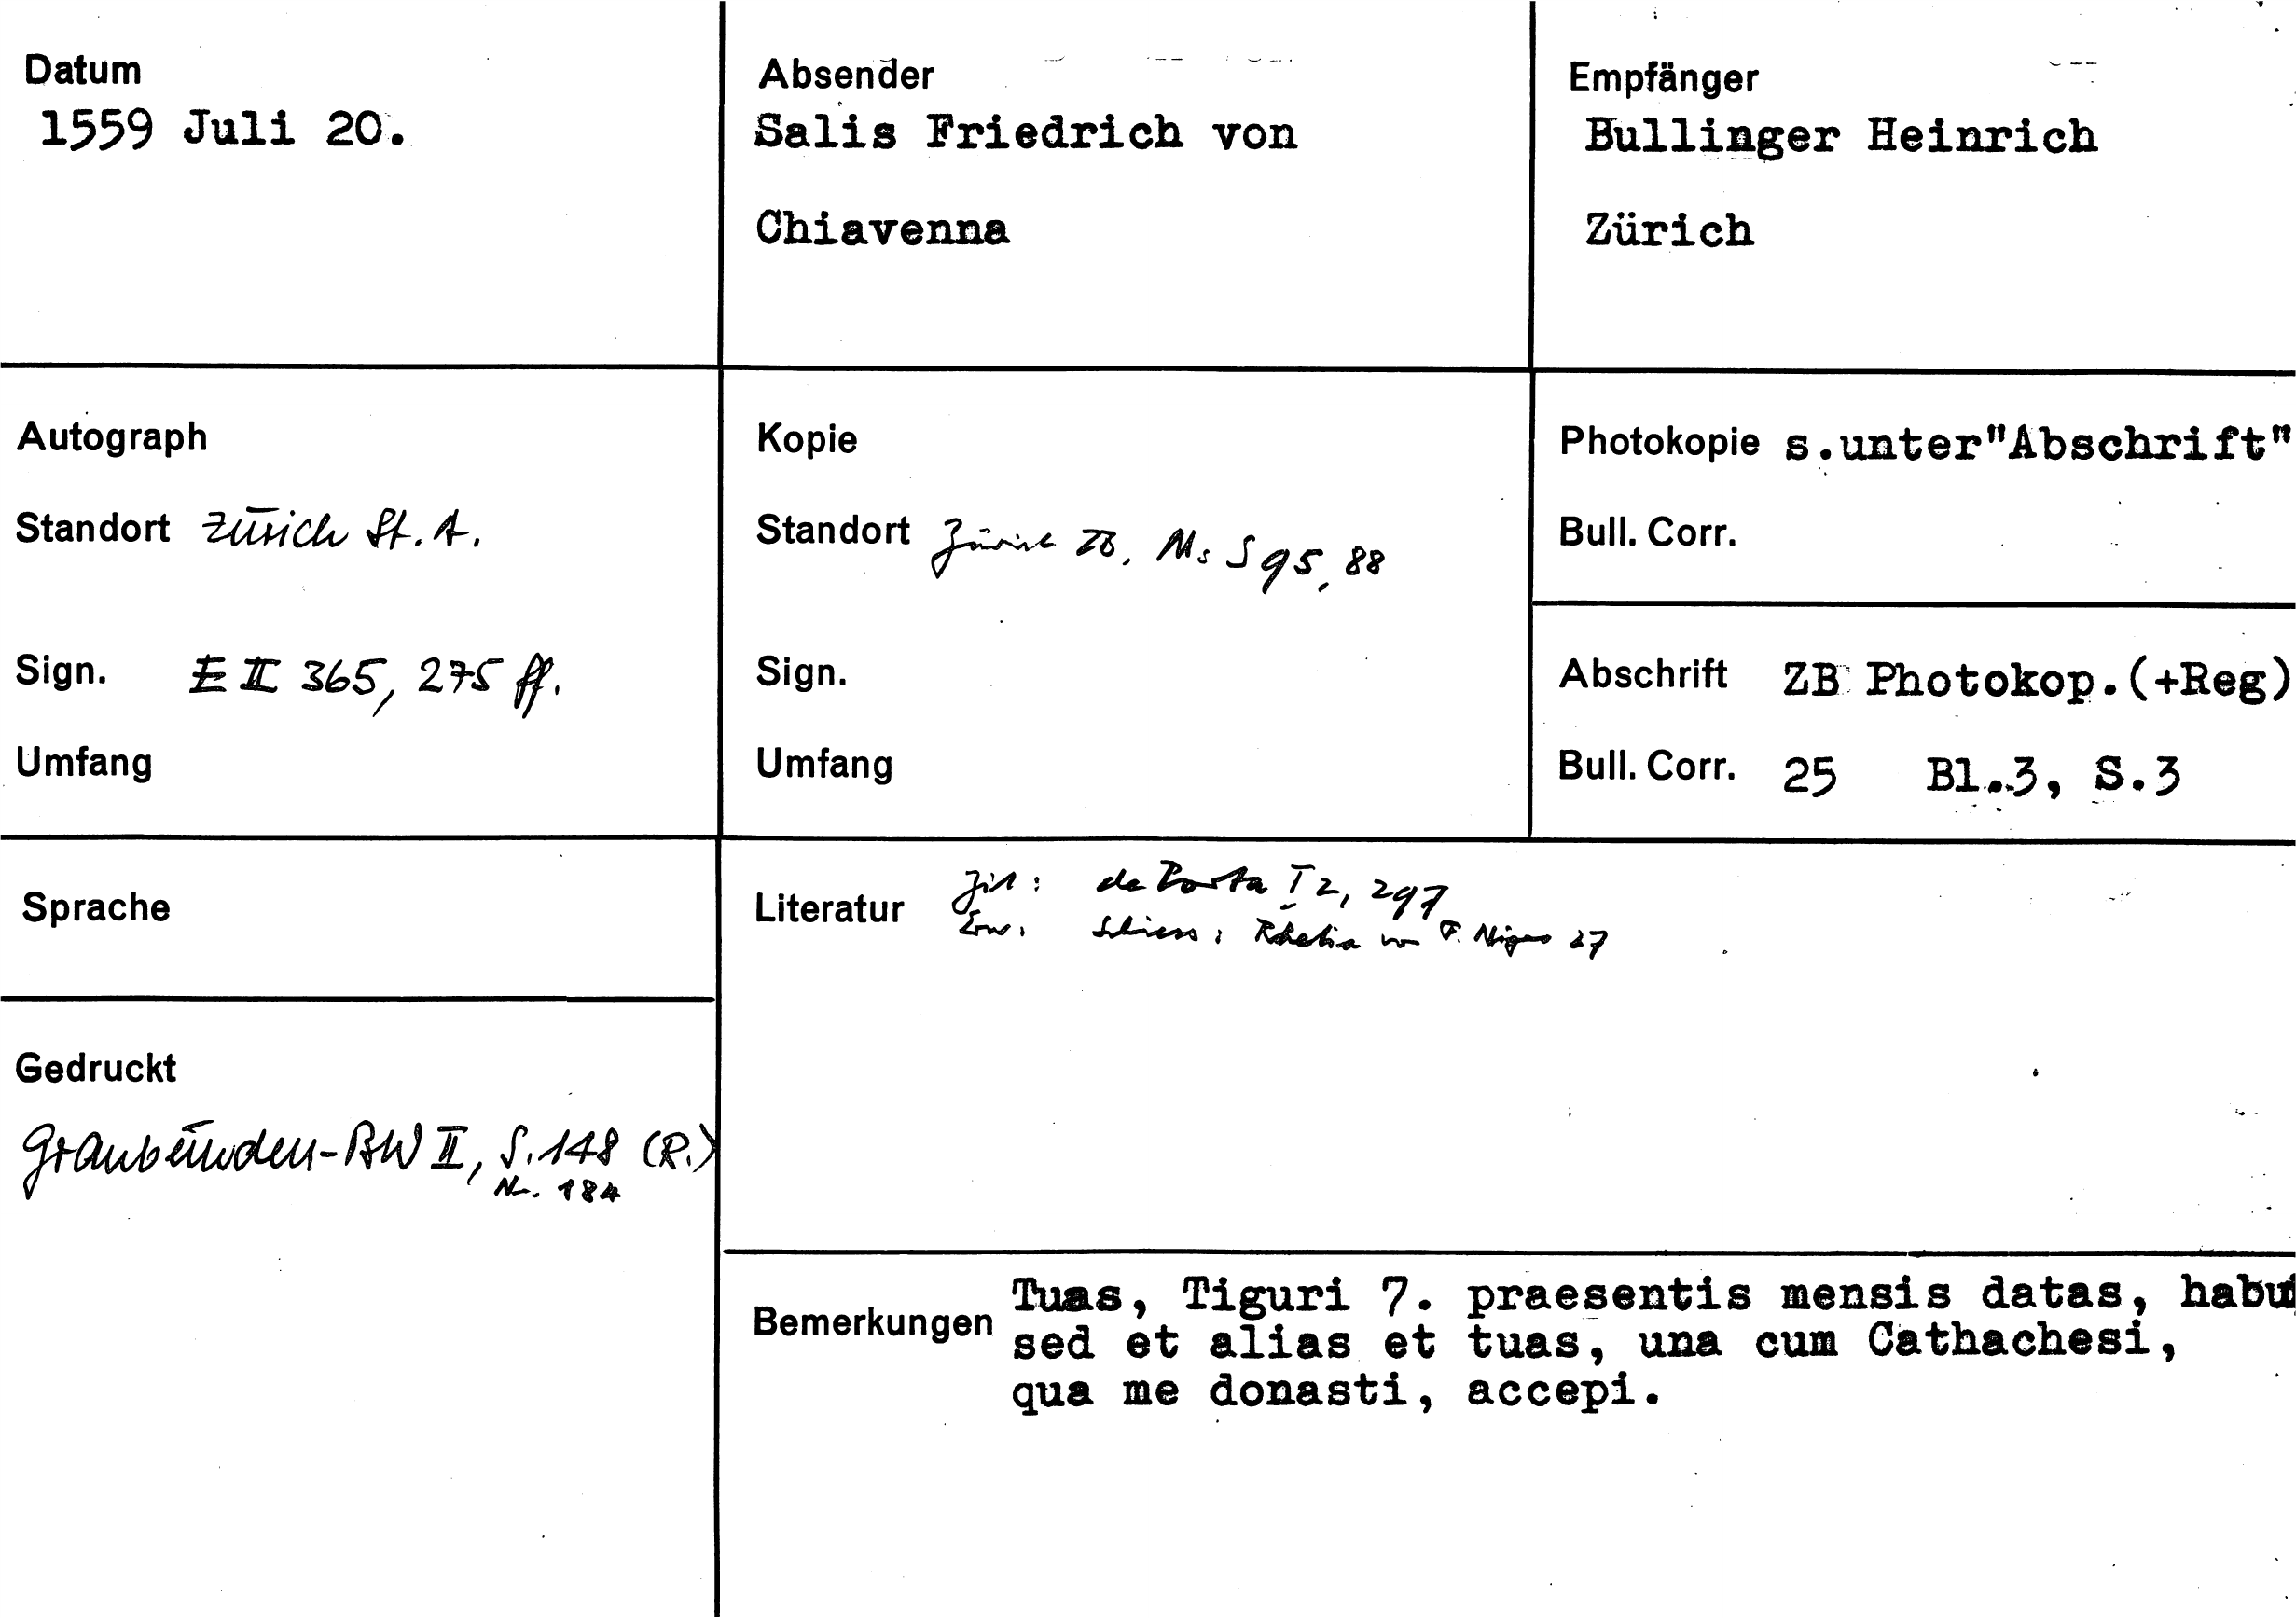 Datum
1559 Juli 20.
Absender
Salis Friedrich von
Chiavenna
Empfänger
Bullinger Heinrich
Zürich
Autograph
Standort Zürich St. A.
Sign. E II 365, 275 ff.
Umfang
Kopie
Standort Zürich ZB, Ms S 95, 88
Sign.
Umfang
Photokopie s.unter"Abschrift"
Bull. Corr.
Abschrift ZB Photokop.(+Reg)
Bull. Corr. 25 Bl.3, S.3
Sprache
Gedruckt
Graubünden-BW II, S. 148 (R.)
Nr. 184
Literatur Zit: de Porta I 2, 297
Erw. Schiess: Rhetia von F. Niger 27
Bemerkungen Tuas, Tiguri 7. praesentis mensis datas, habui
sed et alias et tuas, una cum Cathachesi,
qua me donasti, accepi.